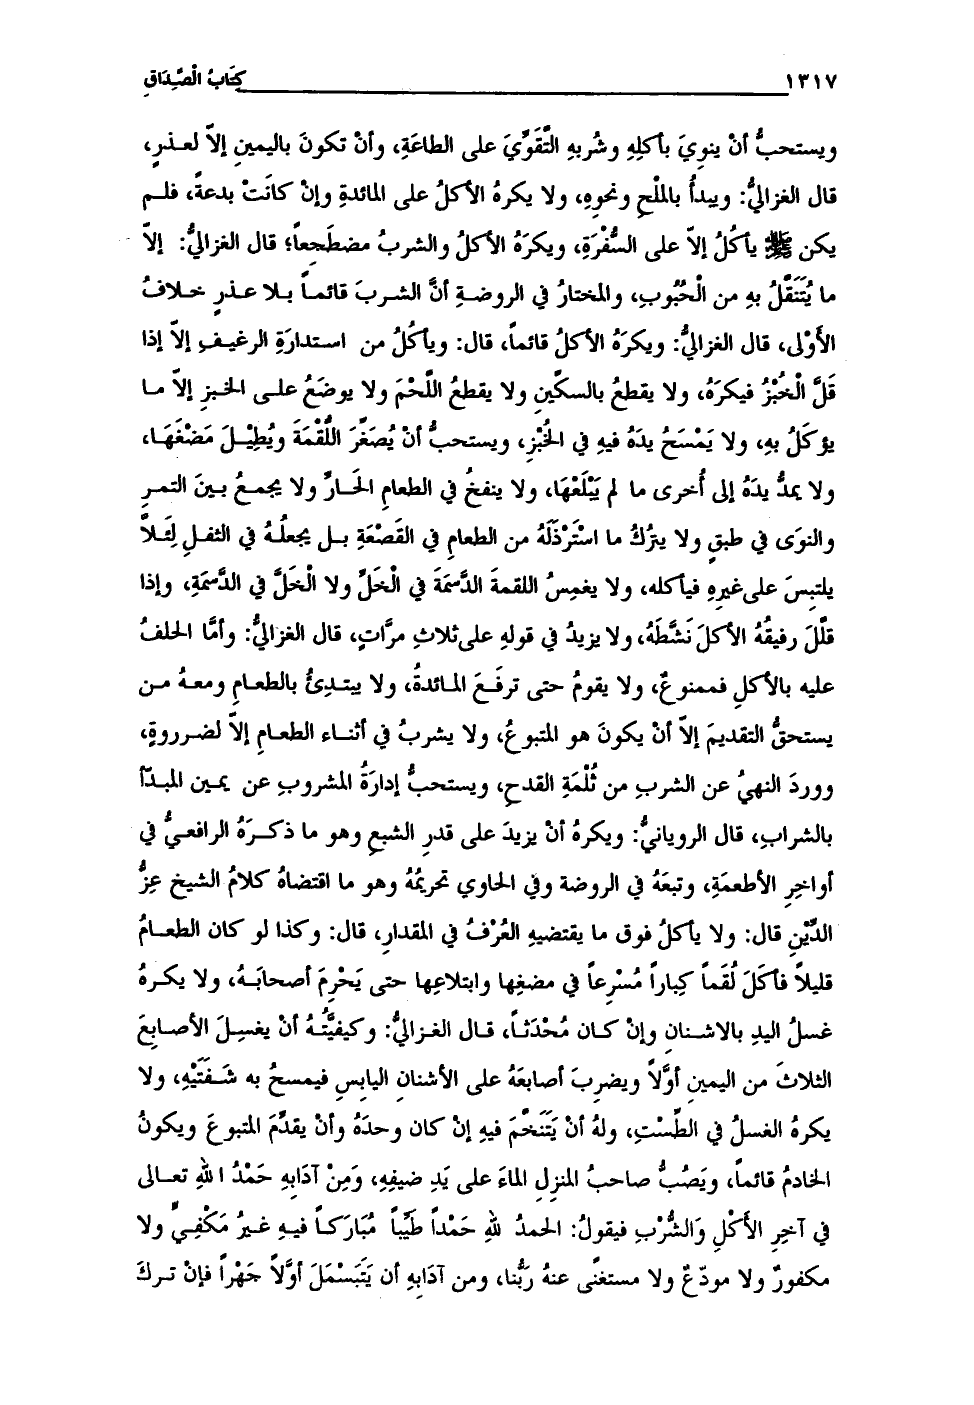 ١٣١٧ كِتَابُ الْصَّدَاقِ
ويستحبُّ أنْ ينوِيَ بأكلِهِ وشُربهِ التَّقَوِّيَ على الطاعَةِ، وأنْ تكونَ باليمينِ إلاَّ لعـذرٍ،
قال الغزاليُّ: ويبدأُ بالملْحِ ونحوِهِ، ولا يكرهُ الأكلُ على المائدةِ وإنْ كانَتْ بدعةً، فلـم
يكن ﷺ يأكُلُ إلاّ على السُّفْرَةِ، ويكرَهُ الأكلُ والشربُ مضطَجعاً؛ قال الغزاليُّ: إلاّ
ما يُتَنَقَّلُ بهِ من الْحُبُوبِ، والمختارُ في الروضةِ أنَّ الشربَ قائمـاً بـلا عـذرٍ خـلافُ
الأَوْلى، قال الغزاليُّ: ويكرَهُ الأكلُ قائماً، قال: ويأكُلُ من استدارَةِ الرغيفِ إلاّ إذا
قَلَّ الْخُبْزُ فيكرَهُ، ولا يقطعُ بالسكِّينِ ولا يقطعُ اللَّحْمَ ولا يوضَعُ علـى الخبزِ إلاّ مـا
يؤكَلُ بهِ، ولا يَمْسَحُ يدَهُ فيهِ في الخُبْزِ، ويستحبُّ أنْ يُصَغِّرَ اللُّقْمَةَ ويُطِيْـلَ مَضْغَهَـا،
ولا يمدُّ يدَهُ إلى أُخرى ما لم يَبْلَعْهَا، ولا ينفخُ في الطعامِ الحَـارِّ ولا يجمعُ بـينَ التمرِ
والنوَى في طبقٍ ولا يتركُ ما اسْتَرْذَلَهُ من الطعامِ في القَصْعَةِ بـل يجعلُـهُ في الثفلِ لِئَـلاَّ
يلتبِسَ على غيرِهِ فيأكله، ولا يغمِسُ اللقمةَ الدَّسِمَةَ في الْخَلِّ ولا الْخَلَّ في الدَّسِمَةِ، وإذا
قلَّلَ رفيقُهُ الأكلَ نَشَّطَهُ، ولا يزيدُ في قولهِ على ثلاثِ مرَّاتٍ، قال الغزاليُّ: وأمَّا الحلفُ
عليه بالأكلِ فممنوعٌ، ولا يقومُ حتى ترفَـعَ المائدةُ، ولا يبتـدِئُ بالطعـامِ ومعـهُ مـن
يستحقُّ التقديمَ إلاّ أنْ يكونَ هو المتبوعُ، ولا يشربُ في أثنـاء الطعـامِ إلاّ لضـرورةٍ،
ووردَ النهيُ عن الشربِ من ثُلْمَةِ القدحِ، ويستحبُّ إدارَةُ المشروبِ عن يمين المبـدّأ
بالشرابِ، قال الرويانيُّ: ويكرهُ أنْ يزيدَ على قدرِ الشبعِ وهو ما ذكـرَهُ الرافعـيُّ في
أواخِرِ الأطعمَةِ، وتبعَهُ في الروضة وفي الحاوي تحريمُهُ وهو ما اقتضاهُ كلامُ الشيخ عِزُّ
الدِّيْنِ قال: ولا يأكلُ فوق ما يقتضيهِ العُرْفُ في المقدارِ، قال: وكذا لو كان الطعـامُ
قليلاً فأكَلَ لُقَماً كِباراً مُسْرِعاً في مضغِها وابتلاعِها حتى يَحْرِمَ أصحابَـهُ، ولا يكرهُ
غسلُ اليدِ بالاشنانِ وإنْ كـان مُحْدَثـاً، قـال الغـزاليُّ: وكيفيَّتُـهُ أنْ يغسِلَ الأصـابعَ
الثلاثَ من اليمينِ أوَّلاً ويضرِبَ أصابعَهُ على الأشنانِ اليابسِ فيمسحُ به شَـفَتَيْهِ، ولا
يكرهُ الغسلُ في الطِّسْتِ، ولهُ أنْ يَتَنَخَّمَ فيهِ إنْ كان وحدَهُ وأنْ يقدِّمَ المتبوعَ ويكونُ
الخادمُ قائماً، ويَصُبُّ صاحبُ المنزلِ الماءَ على يَدِ ضيفِهِ، وَمِنْ آدَابِهِ حَمْدُ اللهِ تعـالى
في آخِرِ الأَكْلِ وَالشُّرْبِ فيقولُ: الحمدُ للهِ حَمْداً طَيِّباً مُبَارَكـاً فيـهِ غيرُ مَكْفِيٍّ ولا
مكفورٌ ولا مودّعٌ ولا مستغنًى عنهُ رَبُّنا، ومن آدَابِهِ أن يَتَبَسْمَلَ أوَّلاً جَهْراً فإنْ تـركَ